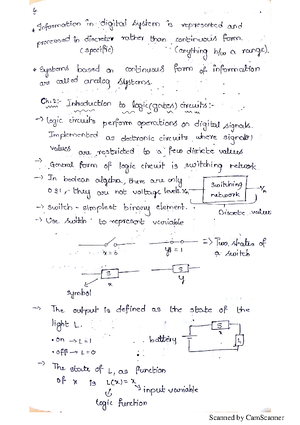 * Information in digital system is represented and
processed in discrete rather than continuous form.
(specific) (anything b/w a range).
* Systems based on continuous form of information
are called analog systems.
Ch. 2: Introduction to logic (gates) circuits:-
→ logic circuits perform operations on digital signals.
Implemented as electronic circuits where signals
values are restricted to a few discrete values
→ General form of logic circuit is switching network
→ In boolean algebra, there are only
0 & 1, they are not voltage levels.
Switching
network
Discrete values
→ Switch - simplest binary element.
→ Use switch to represent variable
x=0
y=1
→ Two states of
a switch
S
x
S
y
symbol
→ The output is defined as the state of the
light L.
• on → L=1
• off → L=0
battery
S
x
L
→ The state of L, as function
of x is L(x) = x
input variable
logic function
Scanned by CamScanner